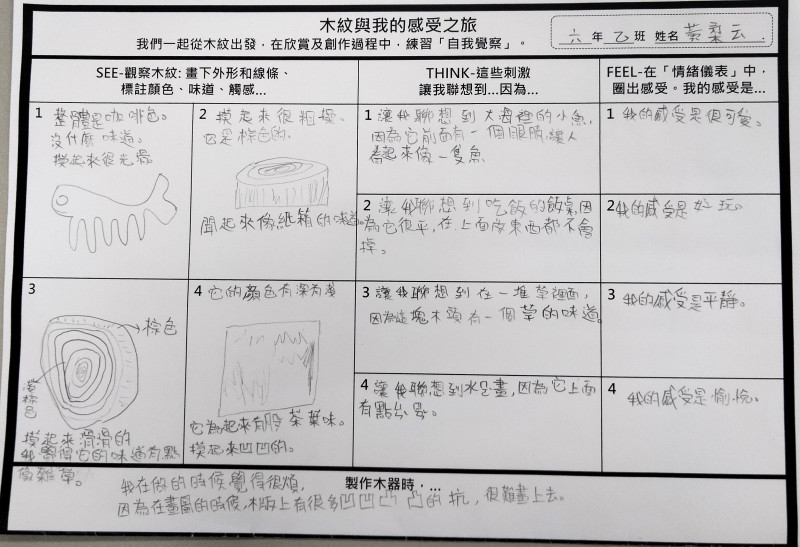 木紋與我的感受之旅
我們一起從木紋出發，在欣賞及創作過程中，練習「自我覺察」。
六 年 乙 班 姓名 黃柔云
SEE-觀察木紋: 畫下外形和線條、
標註顏色、味道、觸感...
THINK-這些刺激
讓我聯想到...因為...
FEEL-在「情緒儀表」中，
圈出感受。我的感受是...
1 整體是咖啡色。
沒什麼味道。
摸起來很光滑
2 摸起來很粗糙。
它是棕色的。
聞起來像紙箱的味道。
1 讓我聯想到大海裡的小魚，
因為它前面有一個眼睛，讓人
看起來像一隻魚
1 我的感受是很可愛。
2 讓我聯想到吃飯的飯桌，因
為它很平，在上面放東西都不會
掉。
2 我的感受是好玩。
3
棕色
深棕色
摸起來滑滑的
我覺得它的味道有點
像雜草。
4 它的顏色有深有淺
它聞起來有股茶葉味。
摸起來凹凹的。
3 讓我聯想到在一堆草裡面，
因為這塊木頭有一個草的味道。
3 我的感受是平靜。
4 讓我聯想到水墨畫，因為它上面
有點
4 我的感受是愉悅。
製作木器時，...
我在做的時候覺得很煩，
因為在畫圖的時候，木板上有很多凹凹凸凸的坑，很難畫上去。